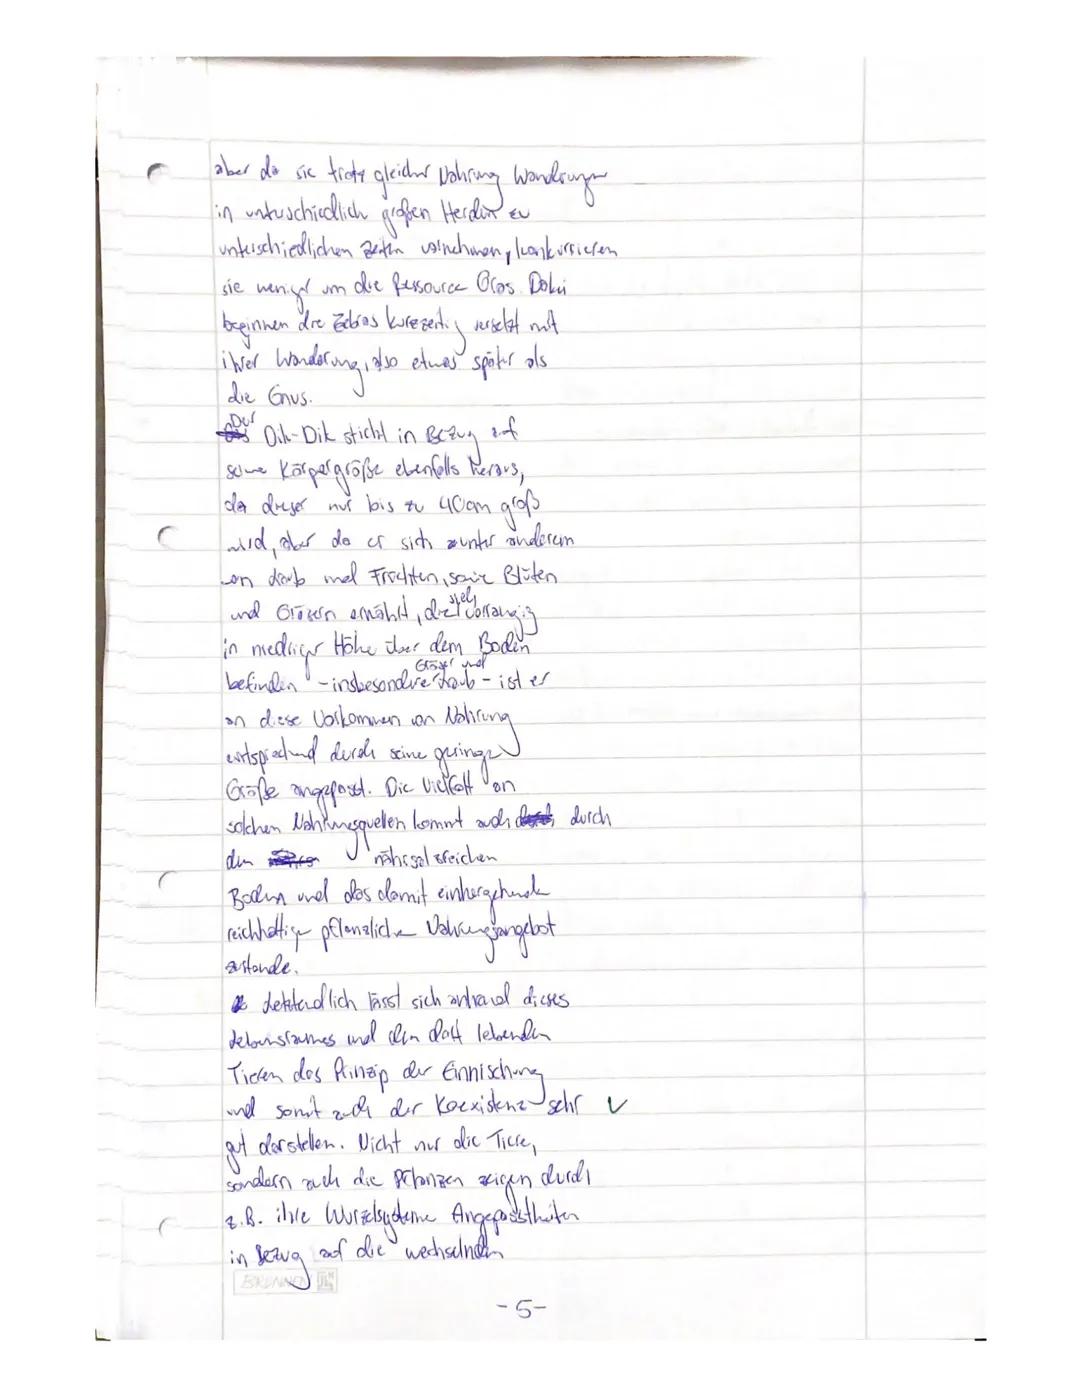 aber da sie trotz gleicher Nahrung Wanderungen
in unterschiedlich großen Herden zu
unterschiedlichen Zeiten vornehmen, konkurrieren
sie weniger um die Ressource Gras. Dabei
beginnen die Zebras kurzzeitig versetzt mit
ihrer Wanderung, also etwas später als
die Gnus.
Der Dik-Dik sticht in Bezug auf
seine Körpergröße ebenfalls heraus,
da dieser nur bis zu 40cm groß
wird, aber da er sich unter anderem
von Laub und Früchten, sowie Blüten
und Gräsern ernährt, die sich vorrangig
in niedriger Höhe über dem Boden
befinden - insbesondere Gräser und Laub - ist er
an diese Vorkommen von Nahrung
entsprechend durch seine geringe
Größe angepasst. Die Vielfalt an
solchen Nahrungsquellen kommt auch durch
den nährsalzreichen
Boden und das damit einhergehende
reichhaltige pflanzliche Nahrungsangebot
zustande.
Letztendlich lässt sich anhand dieses
Lebensraumes und den dort lebenden
Tieren das Prinzip der Einnischung
und somit auch der Koexistenz sehr ✓
gut darstellen. Nicht nur die Tiere,
sondern auch die Pflanzen zeigen durch
z.B. ihre Wurzelsysteme Angepasstheiten
in Bezug auf die wechselnden
BRUNNEN
-5-